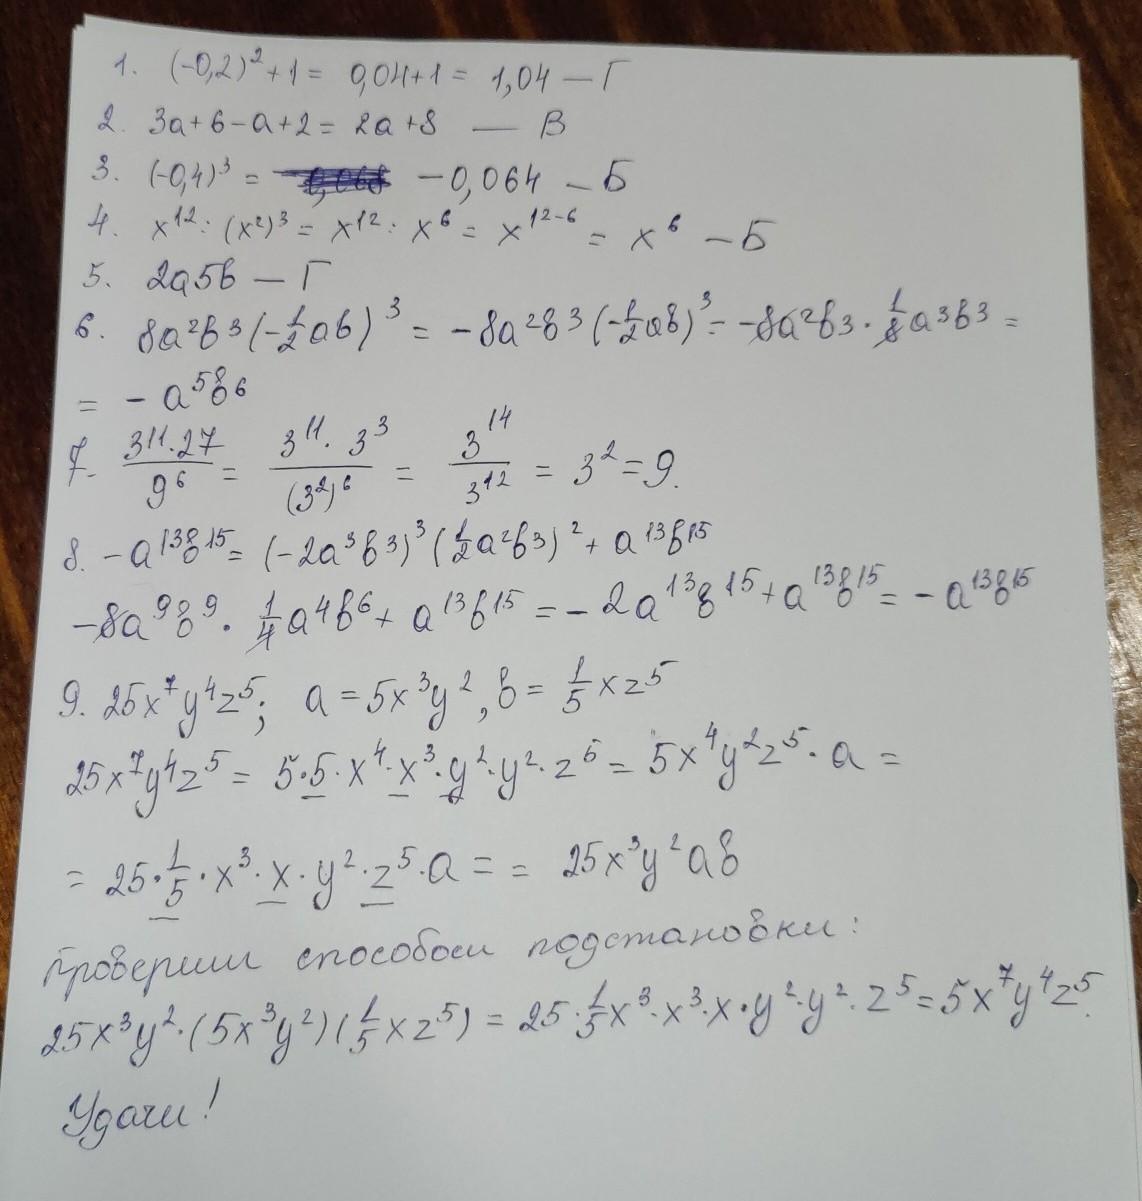 1. (-0,2)² + 1 = 0,04+1 = 1,04 — Г
2. 3a+6-a+2 = 2a+8 — В
3. (-0,4)³ = -0,064 — Б
4. x¹² : (x²)³ = x¹² : x⁶ = x¹²⁻⁶ = x⁶ — Б
5. 2a5b — Г
6. 8a²b³(-1/2ab)³ = -8a²b³(-1/2ab)³ = -8a²b³ · 1/8a³b³ =
= -a⁵b⁶
7. 3¹¹·27/9⁶ = 3¹¹·3³/(3²)⁶ = 3¹⁴/3¹² = 3² = 9.
8. -a¹³b¹⁵ = (-2a³b³)³(1/2a²b³)² + a¹³b¹⁵
-8a⁹b⁹ · 1/4a⁴b⁶ + a¹³b¹⁵ = -2a¹³b¹⁵ + a¹³b¹⁵ = -a¹³b¹⁵
9. 25x⁷y⁴z⁵; a = 5x³y², b = 1/5xz⁵
25x⁷y⁴z⁵ = 5·5·x⁴·x³·y²·y²·z⁵ = 5x⁴y²z⁵·a =
= 25·1/5·x³·x·y²·z⁵·a = = 25x³y²ab
Проверим способом подстановки:
25x³y²·(5x³y²)(1/5xz⁵) = 25·1/5x³·x³·x·y²·y²·z⁵ = 5x⁷y⁴z⁵.
Удачи!